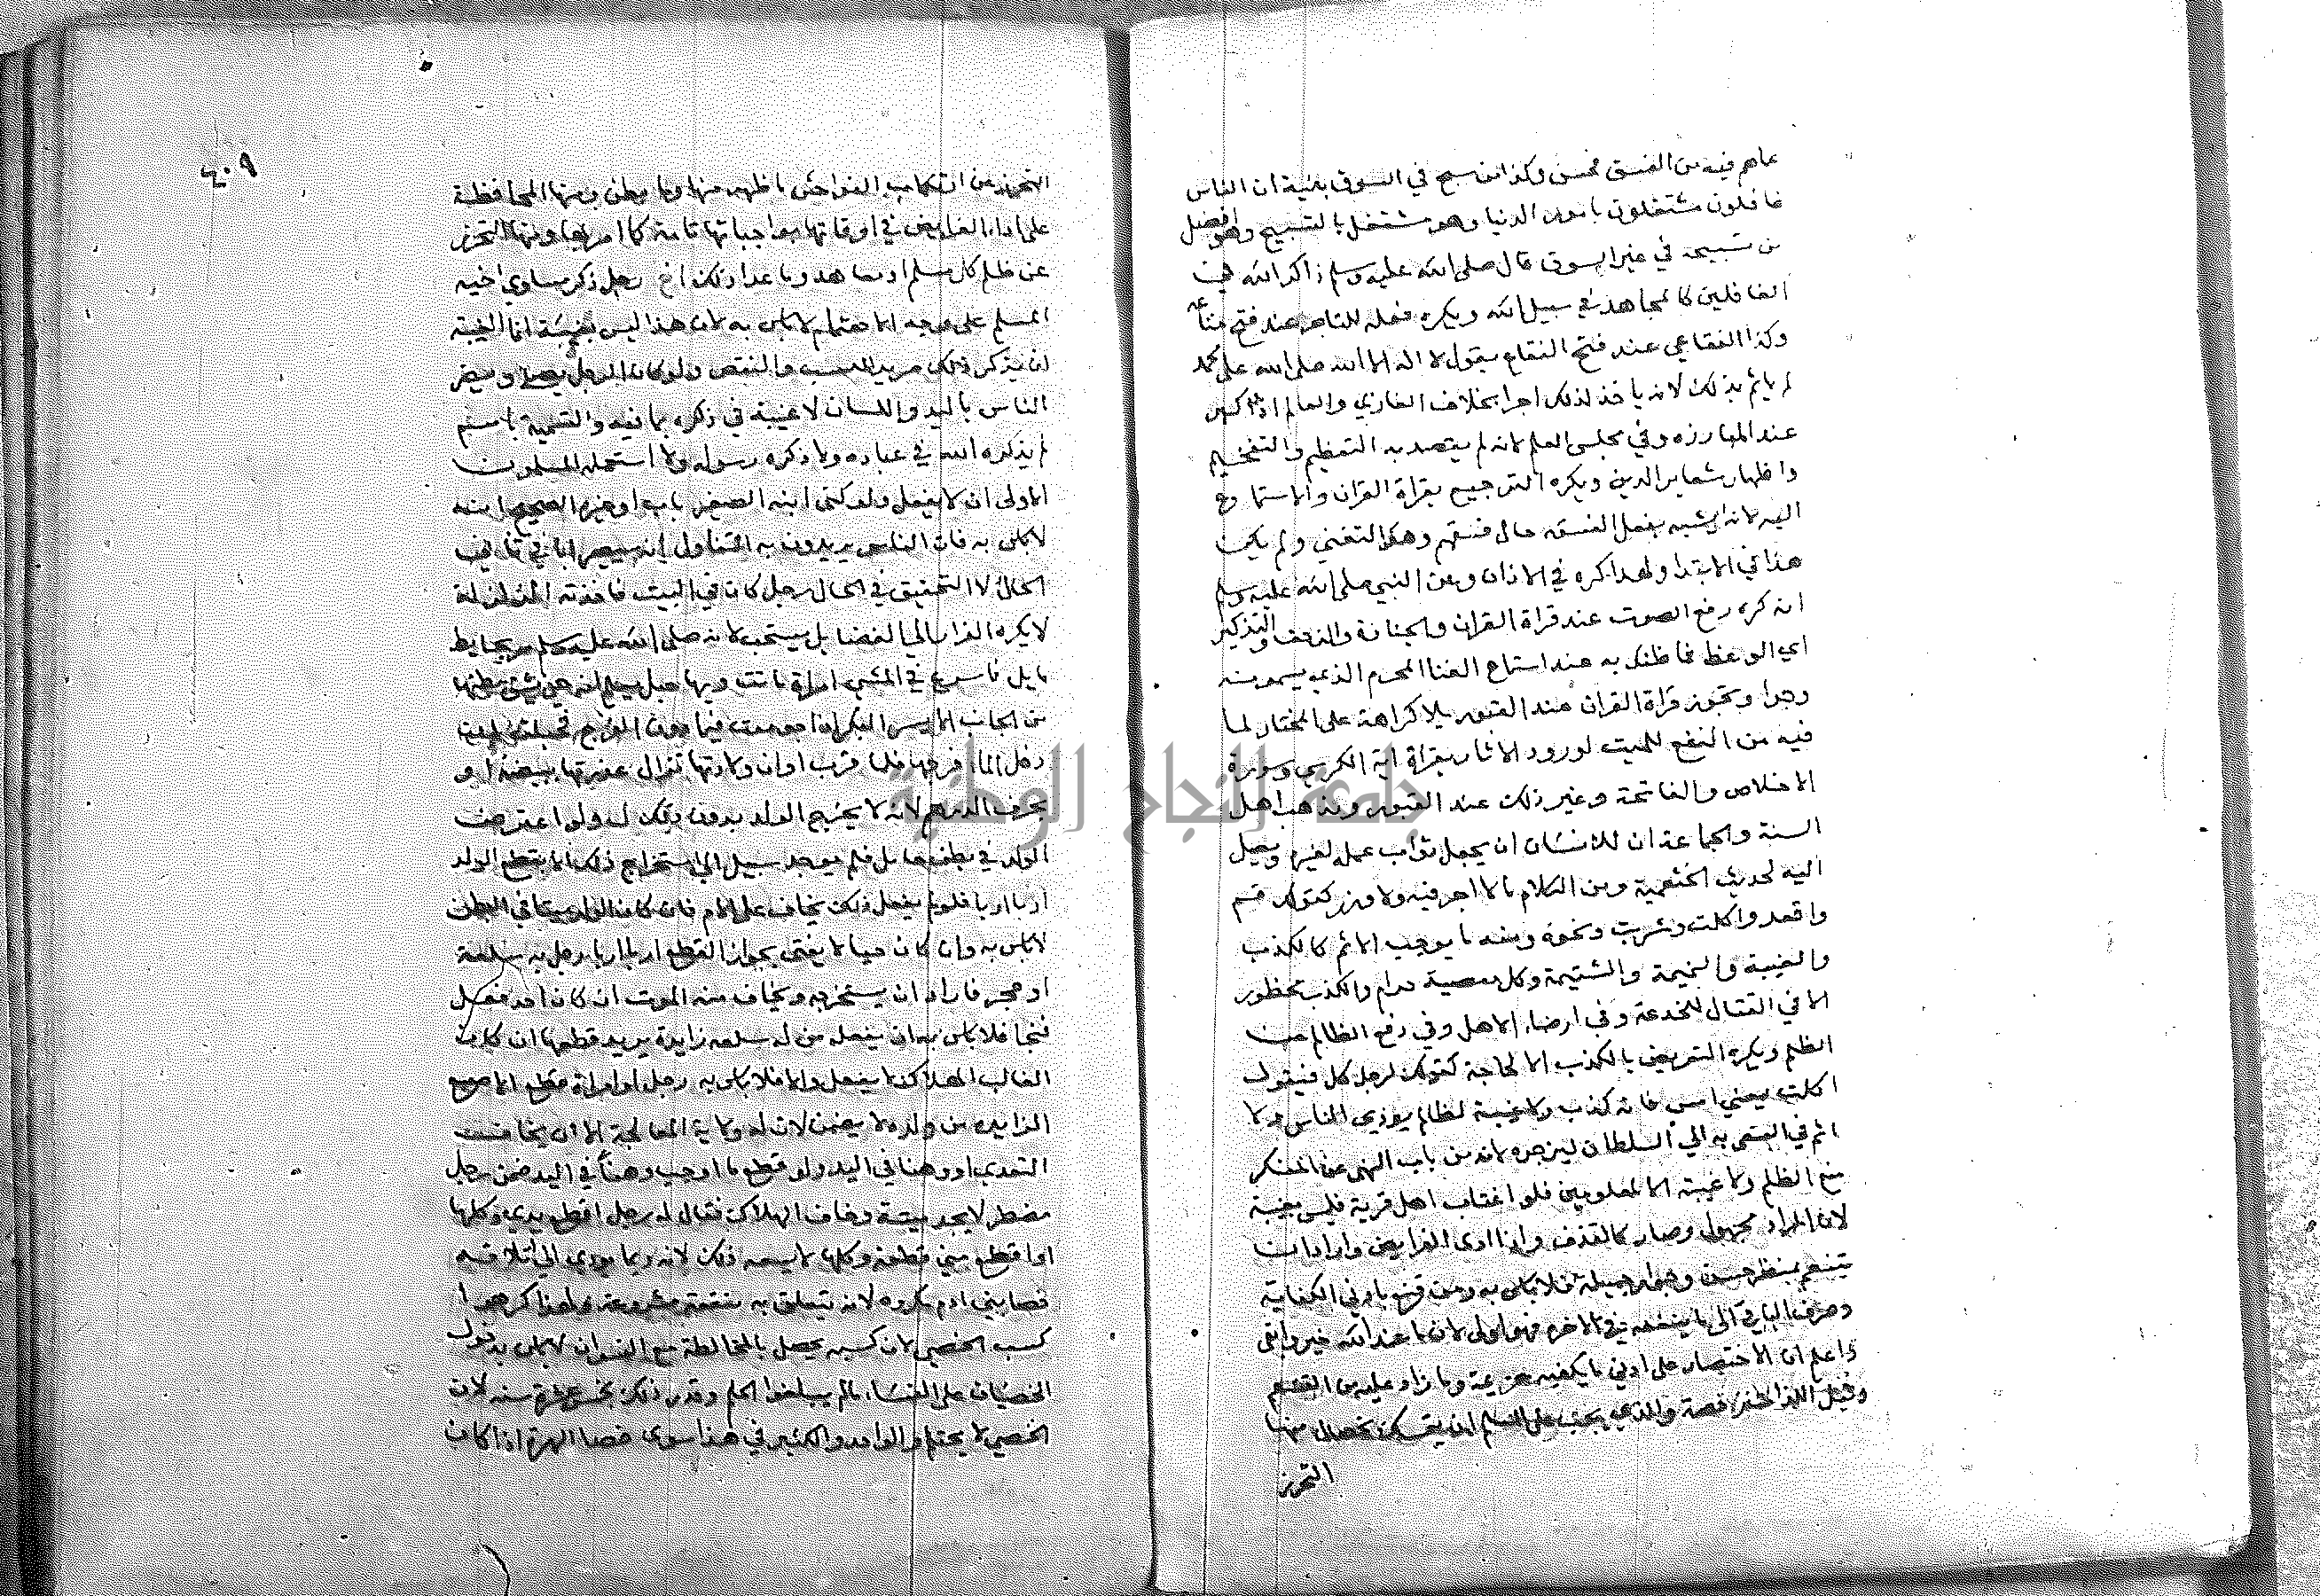 عما هم فيه من الفسق فحسن وكذا من سبح في السوق بنية ان الناس
غافلون مشتغلون بامور الدنيا وهو مشتغل بالتسبيح وهو افضل
من تسبيحه في غير السوق قال صلى الله عليه وسلم ذاكر الله في
الغافلين كالمجاهد في سبيل الله ويكره فعله للتاجر عند فتح متاعه
وكذا الفقاعي عند فتح الفقاع يقول لا اله الا الله صلى الله على محمد
لم ياثم بذلك لانه ياخذ لذلك اجرا بخلاف الغازي والعالم اذا كبر
عند المبارزه وفي مجلس العلم لانه لم يقصد به التعظيم والتفخيم
واظهار شعاير الدين ويكره الترجيع بقراة القران والاستماع
اليه لانه يشبه بفعل الفسقه حال فسقهم وهو التغني ولم يكن
هذا في الابتدا ولهذا كره في الاذان وعن النبي صلى الله عليه وسلم
انه كره رفع الصوت عند قراة القران والجنازة والزحف والتذكير
اي الوعظ فما ظنك به عند استماع الغنا المحرم الذي يسمونه
وجدا وتجوز قراة القران عند القبور بلا كراهة على المختار لما
فيه من النفع للميت لورود الاثار بقراة اية الكرسي وسورة
الاخلاص والفاتحة وغير ذلك عند القبور ومذهب اهل
السنة والجماعة ان للانسان ان يجعل ثواب عمله لغيره ويصل
اليه لحديث الخثعمية ومن الكلام ما لا اجر فيه ولا وزر كقولك قم
واقعد واكلت وشربت ونحوه ومنه ما يوجب الاثم كالكذب
والغيبة والنميمة والشتيمة وكل معصية حرام والكذب محظور
الا في القتال للخدعة وفي ارضاء الاهل وفي دفع الظالم عن
الظلم ويكره التعريض بالكذب الا لحاجة كقولك لرجل كل فيقول
اكلت يعني امس فانه كذب ولا غيبة لظالم يوذي الناس ولا
اثم في السعي به الي السلطان ليزجره لانه من باب النهي عن المنكر
منع الظلم ولا غيبة الا لمعلومين فلو اغتاب اهل قرية فليس بغيبة
لان المراد مجهول وصار كالقذف واذا ادى الفرايض واراد ان
يتنعم بمنظر حسن وجوار جميلة فلا باس به ومن قنع بادني الكفاية
وصرف الباقي الى ما ينفعه في الاخرة فهو اولى لان ما عند الله خير وابقى
واعلم ان الاختصار على ادني ما يكفيه عزيمة وما زاد عليه من التنعم
ونيل اللذات رخصة والذي يجب على المسلم ان يتمسك بخصال منها
التحرز
٤٠٩
التحرز عن ارتكاب الفواحش ما ظهر منها وما بطن ومنها المحافظة
على اداء الفرايض في اوقاتها بواجباتها تامة كما امر بها ومنها التحرز
عن ظلم كل مسلم او معاهد وما عدا ذلك اخ رجل ذكر مساوي اخيه
المسلم على وجه الاهتمام لا باس به لان هذا ليس بغيبة انما الغيبة
ان يذكر ذلك مريدا للسب والنقص ولو كان الرجل يصلي ويضر
الناس باليد واللسان لا غيبة في ذكره بما فيه والتسمية باسم
لم يذكره الله في عباده ولا ذكره رسوله ولا استعمله المسلمون
الاولى ان لا يفعل ولو كنى ابنه الصغير باب او غيره الصحيح انه
لا باس به فان الناس يريدون به التفاول انه سيصير ابا في ثاني
الحال لا التحقيق في الحال رجل كان في البيت فاخذته الزلزلة
لا يكره الفرار الي الفضا بل يستحب لانه صلى الله عليه وسلم مر بحايط
مايل فاسرع في المشي امراة ماتت وبها حبل يعلم انه حي يشق بطنها
من الجانب الايسر البكر اذا جومعت فيما دون الفرج فحبلت بان
دخل الماء فرجها فلما قرب اوان ولادتها تزال عذرتها ببيضة او
بحرف الدرهم لانه لا يخرج الولد بدون ذلك ولو اعترض
الولد في بطن حامل فلم يوجد سبيل الي استخراج ذلك الا بقطع الولد
اربا اربا فلو لم يفعل ذلك يخاف على الام فان كان الولد ميتا في البطن
لا باس به وان كان حيا لا يفتى بجواز القطع اربا اربا رجل به سلعة
او حجر فاراد ان يستخرجه ويخاف منه الموت ان كان احد فعل
فنجا فلا باس به ان يفعله من له سلعه زايدة يريد قطعها ان كان
الغالب الهلاك لا يفعل والا فلا باس به رجل او امراة قطع الاصبع
الزايدة من ولده لا يضمن لان له ولاية المعالجة الا ان يخاف
التعدي او وهنا في اليد ولو قطع ما اوجب وهنا في اليد ضمن رجل
مضطر لا يجد ميتة وخاف الهلاك فقال له رجل اقطع يدي وكلها
او اقطع مني قطعة وكلها لا يسعه ذلك لانه ربما يودي الي اتلافه
خصا بني ادم مكروه لانه تتعلق به منفعة مشروعة ولهذا كرهوا
كسب الخصي لان كسبه يحصل بالمخالطة مع النسوان لا باس بدخول
الخصيان على النساء ما لم يبلغوا الحلم وقدر ذلك بخمس عشرة سنه لان
الخصي لا يحتلم والواحد والكثير في هذا سوى خصا الهرة اذا كان
جامعة النجاح الوطنية